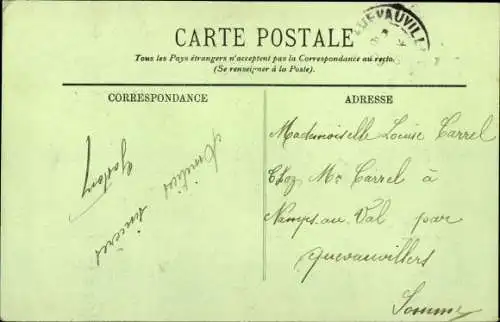 QUEVAUVILL
CARTE POSTALE
Tous les Pays étrangers n'acceptent pas la Correspondance au recto.
(Se renseigner à la Poste).
CORRESPONDANCE
ADRESSE
Amitiés
sincères
Mademoiselle Louise Carrel
Chez Mr Carrel à
Namps-au-Val par
Quevauvillers
Somme